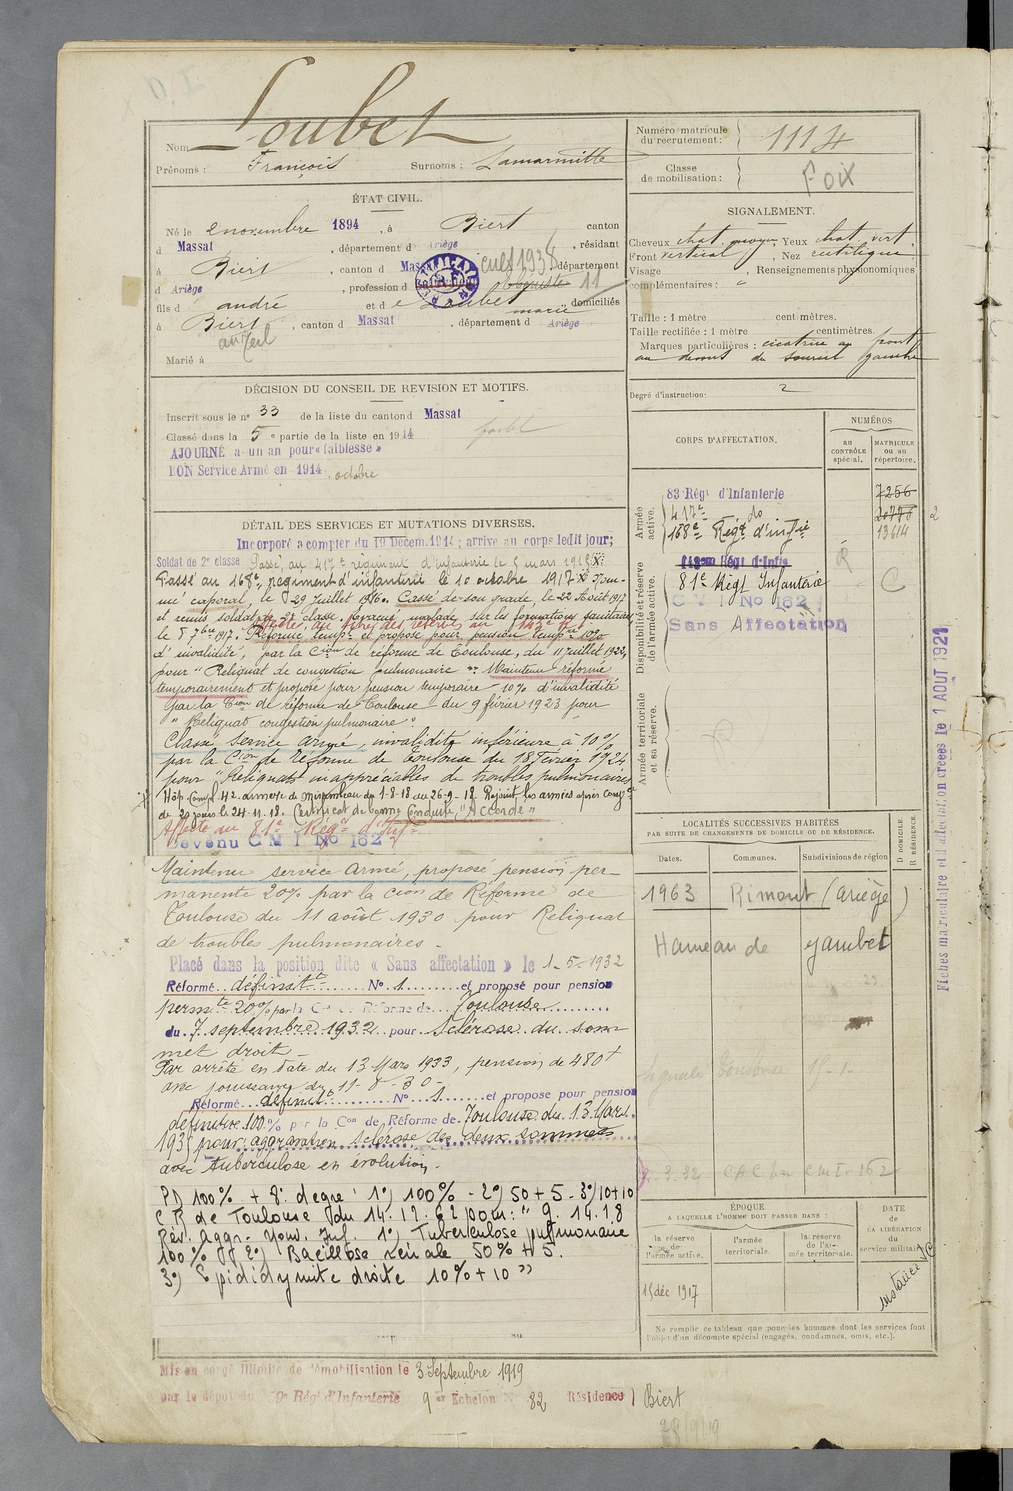 Loubet
Nom
Prénoms : François Surnoms : Lamarmitte
ÉTAT CIVIL.
Né le 2 novembre 1894, à Biert canton
d Massat, département d Ariège, résidant
à Biert, canton d Mas département
d Ariège, profession d
fils d andré et de Loubet marie domiciliés
à Biert, canton d Massat, département d Ariège
Marié à
DÉCISION DU CONSEIL DE REVISION ET MOTIFS.
Inscrit sous le n° 33 de la liste du canton d Massat
Classé dans la 5e partie de la liste en 1914
AJOURNÉ à un an pour « faiblesse »
BON Service Armé en 1914 octobre
DÉTAIL DES SERVICES ET MUTATIONS DIVERSES.
Incorporé à compter du 19 Décem. 1914 ; arrivé au corps ledit jour;
Soldat de 2e classe Passé au 417e régiment d'infanterie le 5 mars 1915
Passé au 168e régiment d'infanterie le 10 octobre 1917 Nom-
mé caporal, le 29 Juillet 1916. Cassé de son grade, le 22 Août 1917
et remis soldat de 2e classe. évacué malade sur les formations sanitaires
le 5 7bre 1917. Réformé tempre et proposé pour pension tempre 10%
d'invalidité, par la Cion de réforme de Toulouse, du 11 juillet 1922,
pour "Reliquat de congestion pulmonaire". Maintenu réformé
temporairement et proposé pour pension temporaire 10% d'invalidité
par la Cion de réforme de Toulouse du 9 février 1923 pour
"Reliquat congestion pulmonaire"
Classé service armé, invalidité inférieure à 10%
par la Cion de Réforme de Toulouse du 18 Février 1924
pour "Reliquats inappréciables de troubles pulmonaires
Hôp. Compl. 42 annexe de Mirambeau du 1-8-18 au 26-9-18. Rejoint les armées après congé
de 20 jours le 24-11-18. Certificat de bonne Conduite "Accordé"
Affecté au 81e Régt d'Infie
Devenu C M I No 162
Maintenu service armé, proposé pension per-
manente 20% par la Cion de Réforme de
Toulouse du 11 août 1930 pour Reliquat
de troubles pulmonaires -
Placé dans la position dite « Sans affectation » le 1-5-1932
Réformé définitt N° 1 et proposé pour pension
permte 20% par la Cion de Réforme de Toulouse
du 7 septembre 1932 pour Sclérose du som-
met droit -
Par arrêté en date du 13 Mars 1933, pension de 480f
avec jouissance du 11-8-30-
Réformé définitt N° 1 et proposé pour pension
définitive 100% par la Con de Réforme de Toulouse du 13 Mars
1935 pour aggravation sclérose des deux sommets
avec tuberculose en évolution.
PD 100% + 8° degré : 1°) 100% - 2°) 50 + 5 - 3°) 10 + 10
C R de Toulouse du 14.12.62 pour : " 9.14.18
Rév. Aggr. Nouv. Inf. 1°) Tuberculose pulmonaire
100% 2°) Bacillose rénale 50% + 5.
3°) Epididymite droite 10% + 10 "
Mis en congé illimité de démobilisation le 3 Septembre 1919
par le dépôt du 59e Régt d'Infanterie 9er Echelon N° 82 Résidence Biert
28/9/19
Numéro matricule du recrutement : 1114
Classe de mobilisation : Foix
SIGNALEMENT.
Cheveux chat. moyen Yeux chat. vert.
Front vertical, Nez rectiligne
Visage , Renseignements physionomiques
complémentaires : "
Taille : 1 mètre centimètres.
Taille rectifiée : 1 mètre centimètres.
Marques particulières : cicatrice au front
au dessus du sourcil gauche
Degré d'instruction : 2
CORPS D'AFFECTATION.
NUMÉROS
au CONTRÔLE spécial.
MATRICULE ou au répertoire.
Armée active.
83 Régt d'Infanterie 7256
417e do 20776
168e Régt d'Infie 13614
Disponibilité et réserve de l'armée active.
143em Régt d'Infie
81e Régt Infanterie C
C M I No 162
Sans Affectation
Armée territoriale et sa réserve.
Fiches matriculaire et d'affectation créées le 1 AOUT 1921
LOCALITÉS SUCCESSIVES HABITÉES
PAR SUITE DE CHANGEMENTS DE DOMICILE OU DE RÉSIDENCE.
Dates. Communes. Subdivisions de région
D DOMICILE R RÉSIDENCE.
1963 Rimont (Ariège)
Hameau de
ÉPOQUE
A LAQUELLE L'HOMME DOIT PASSER DANS :
la réserve de l'armée active.
l'armée territoriale.
la réserve de l'armée territoriale.
DATE DE LA LIBÉRATION du service militaire.
15 déc 1917
Ne remplir ce tableau que pour les hommes dont les services font
l'objet d'un décompte spécial (engagés, condamnés, omis, etc.).